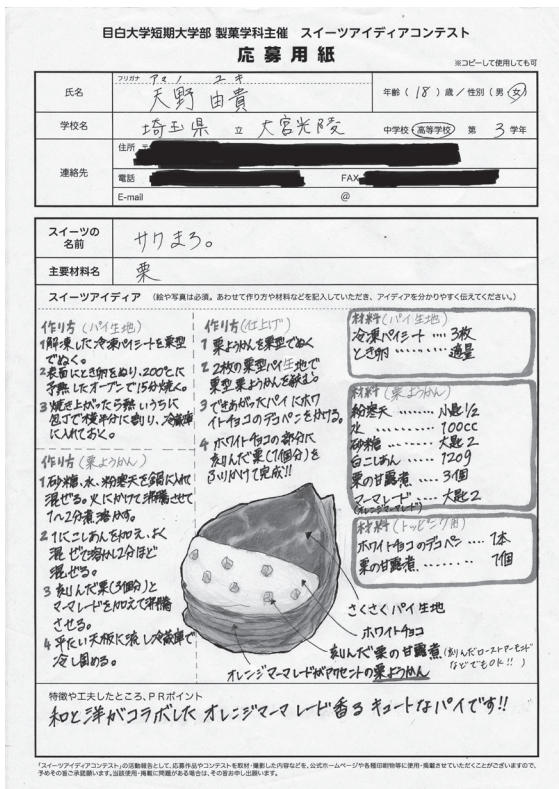 目白大学短期大学部 製菓学科主催 スイーツアイディアコンテスト
応募用紙
※コピーして使用しても可
フリガナ アマノ ユキ
氏名 天野 由貴 年齢(18)歳/性別(男・女)
学校名 埼玉県 立 大宮光陵 中学校・高等学校 第 3 学年
連絡先
住所
電話 FAX
E-mail @
スイーツの名前 サクまろ。
主要材料名 栗
スイーツアイディア (絵や写真は必須。あわせて作り方や材料などを記入していただき、アイディアを分かりやすく伝えてください。)
作り方(パイ生地)
1 解凍した冷凍パイシートを栗型
でぬく。
2 表面にとき卵をぬり、200℃に
予熱したオーブンで15分焼く。
3 焼き上がったら熱いうちに
包丁で横半分に割り、冷蔵庫
に入れておく。
作り方(栗ようかん)
1 砂糖、水、粉寒天を鍋に入れ
混ぜる。火にかけて沸騰させて
1〜2分煮溶かす。
2 1にこしあんを加え、よく
混ぜて溶かし2分ほど
混ぜる。
3 刻んだ栗(3個分)と
マーマレードを加えて沸騰
させる。
4 平たい天板に流し冷蔵庫で
冷し固める。
作り方(仕上げ)
1 栗ようかんを栗型でぬく
2 2枚の栗型パイ生地で
栗型栗ようかんを挟む。
3 できあがったパイにホワ
イトチョコのデコペンをかける。
4 ホワイトチョコの部分に
刻んだ栗(1個分)を
ふりかけて完成!!
材料(パイ生地)
冷凍パイシート ‥‥ 3枚
とき卵 ‥‥‥‥ 適量
材料(栗ようかん)
粉寒天 ‥‥‥ 小匙1/2
水 ‥‥‥‥ 100cc
砂糖 ‥‥‥ 大匙2
白こしあん ‥‥ 120g
栗の甘露煮 ‥‥ 3個
マーマレード ‥‥ 大匙2
(オレンジマーマレード)
材料(トッピング用)
ホワイトチョコのデコペン ‥‥ 1本
栗の甘露煮 ‥‥‥‥ 1個
さくさくパイ生地
ホワイトチョコ
刻んだ栗の甘露煮(刻んだローストアーモンド
などでもOK!!)
オレンジマーマレードがアクセントの栗ようかん
特徴や工夫したところ、PRポイント
和と洋がコラボした オレンジマーマレード香る キュートなパイです!!
「スイーツアイディアコンテスト」の活動報告として、応募作品やコンテストを取材・撮影した内容などを、公式ホームページや各種印刷物等に使用・掲載させていただくことがございますので、
予めその旨ご承諾願います。当該使用・掲載に問題がある場合は、その旨お申し出願います。